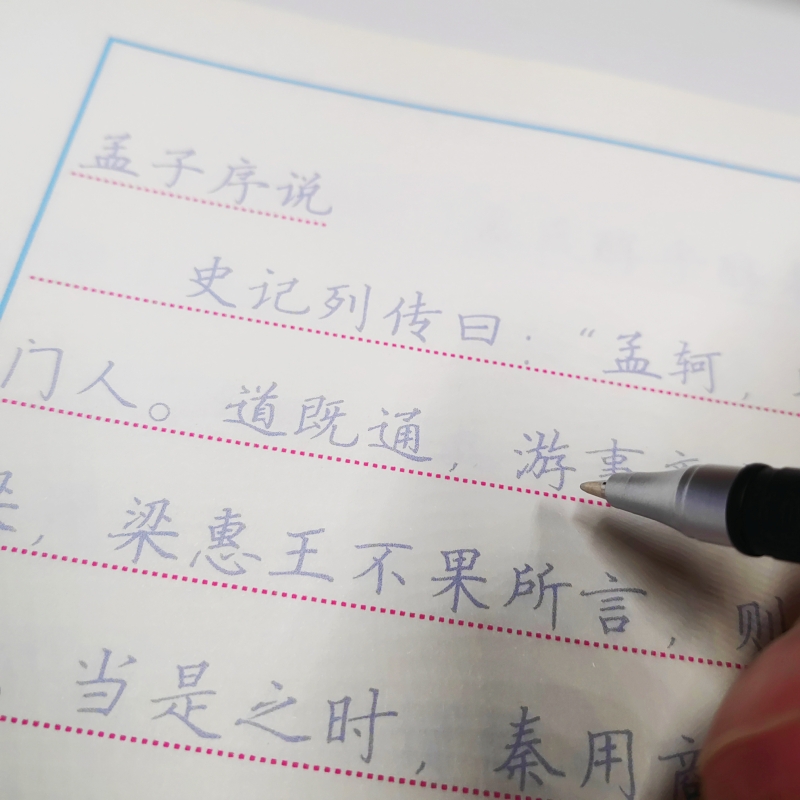 孟子序说
史记列传曰：“孟轲，
门人。道既通，游事
，梁惠王不果所言，则
当是之时，秦用商